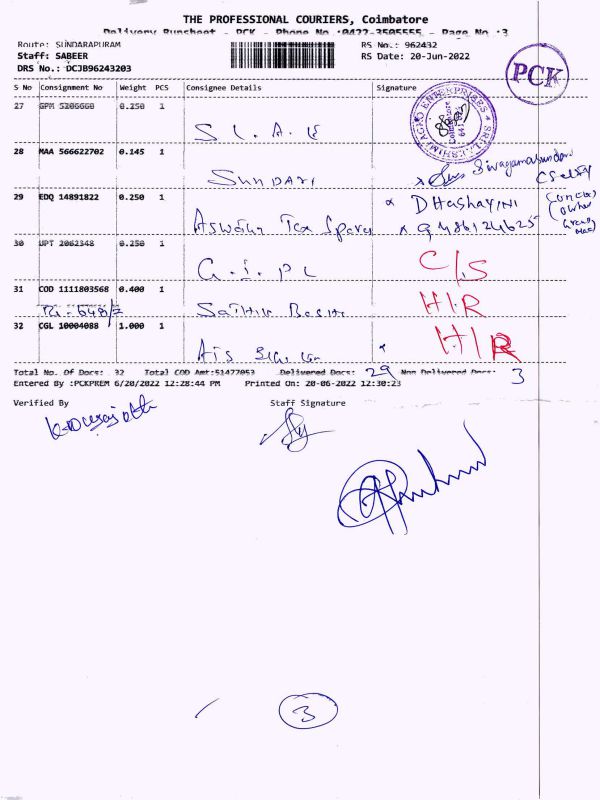 THE PROFESSIONAL COURIERS, Coimbatore
Delivery Runsheet - PCK - Phone No :0422-3505555 - Page No :3
Route: SUNDARAPURAM
RS No.: 962432
Staff: SABEER
RS Date: 20-Jun-2022
DRS No.: DCJB96243203
PCK
S No Consignment No Weight PCS Consignee Details Signature
27 GPM 0.250 1
S L A E
ENTERPRISES
28 MAA 566622702 0.145 1
SUNDARI
Sivagamasundari
29 EDQ 14891822 0.250 1
DHashayini
Aswath Tex Spares
x 9486124625
30 UPT 2062348 0.250 1
G. I. P L
C/S
31 COD 1111803568 0.400 1
H/R
32 CGL 10004088 1.000 1
H/R
Total No. Of Docs: 32 Total COD Amt:51477053 Delivered Docs: 29 Non Delivered Docs: 3
Entered By :PCKPREM 6/20/2022 12:28:44 PM Printed On: 20-06-2022 12:30:23
Verified By Staff Signature
3